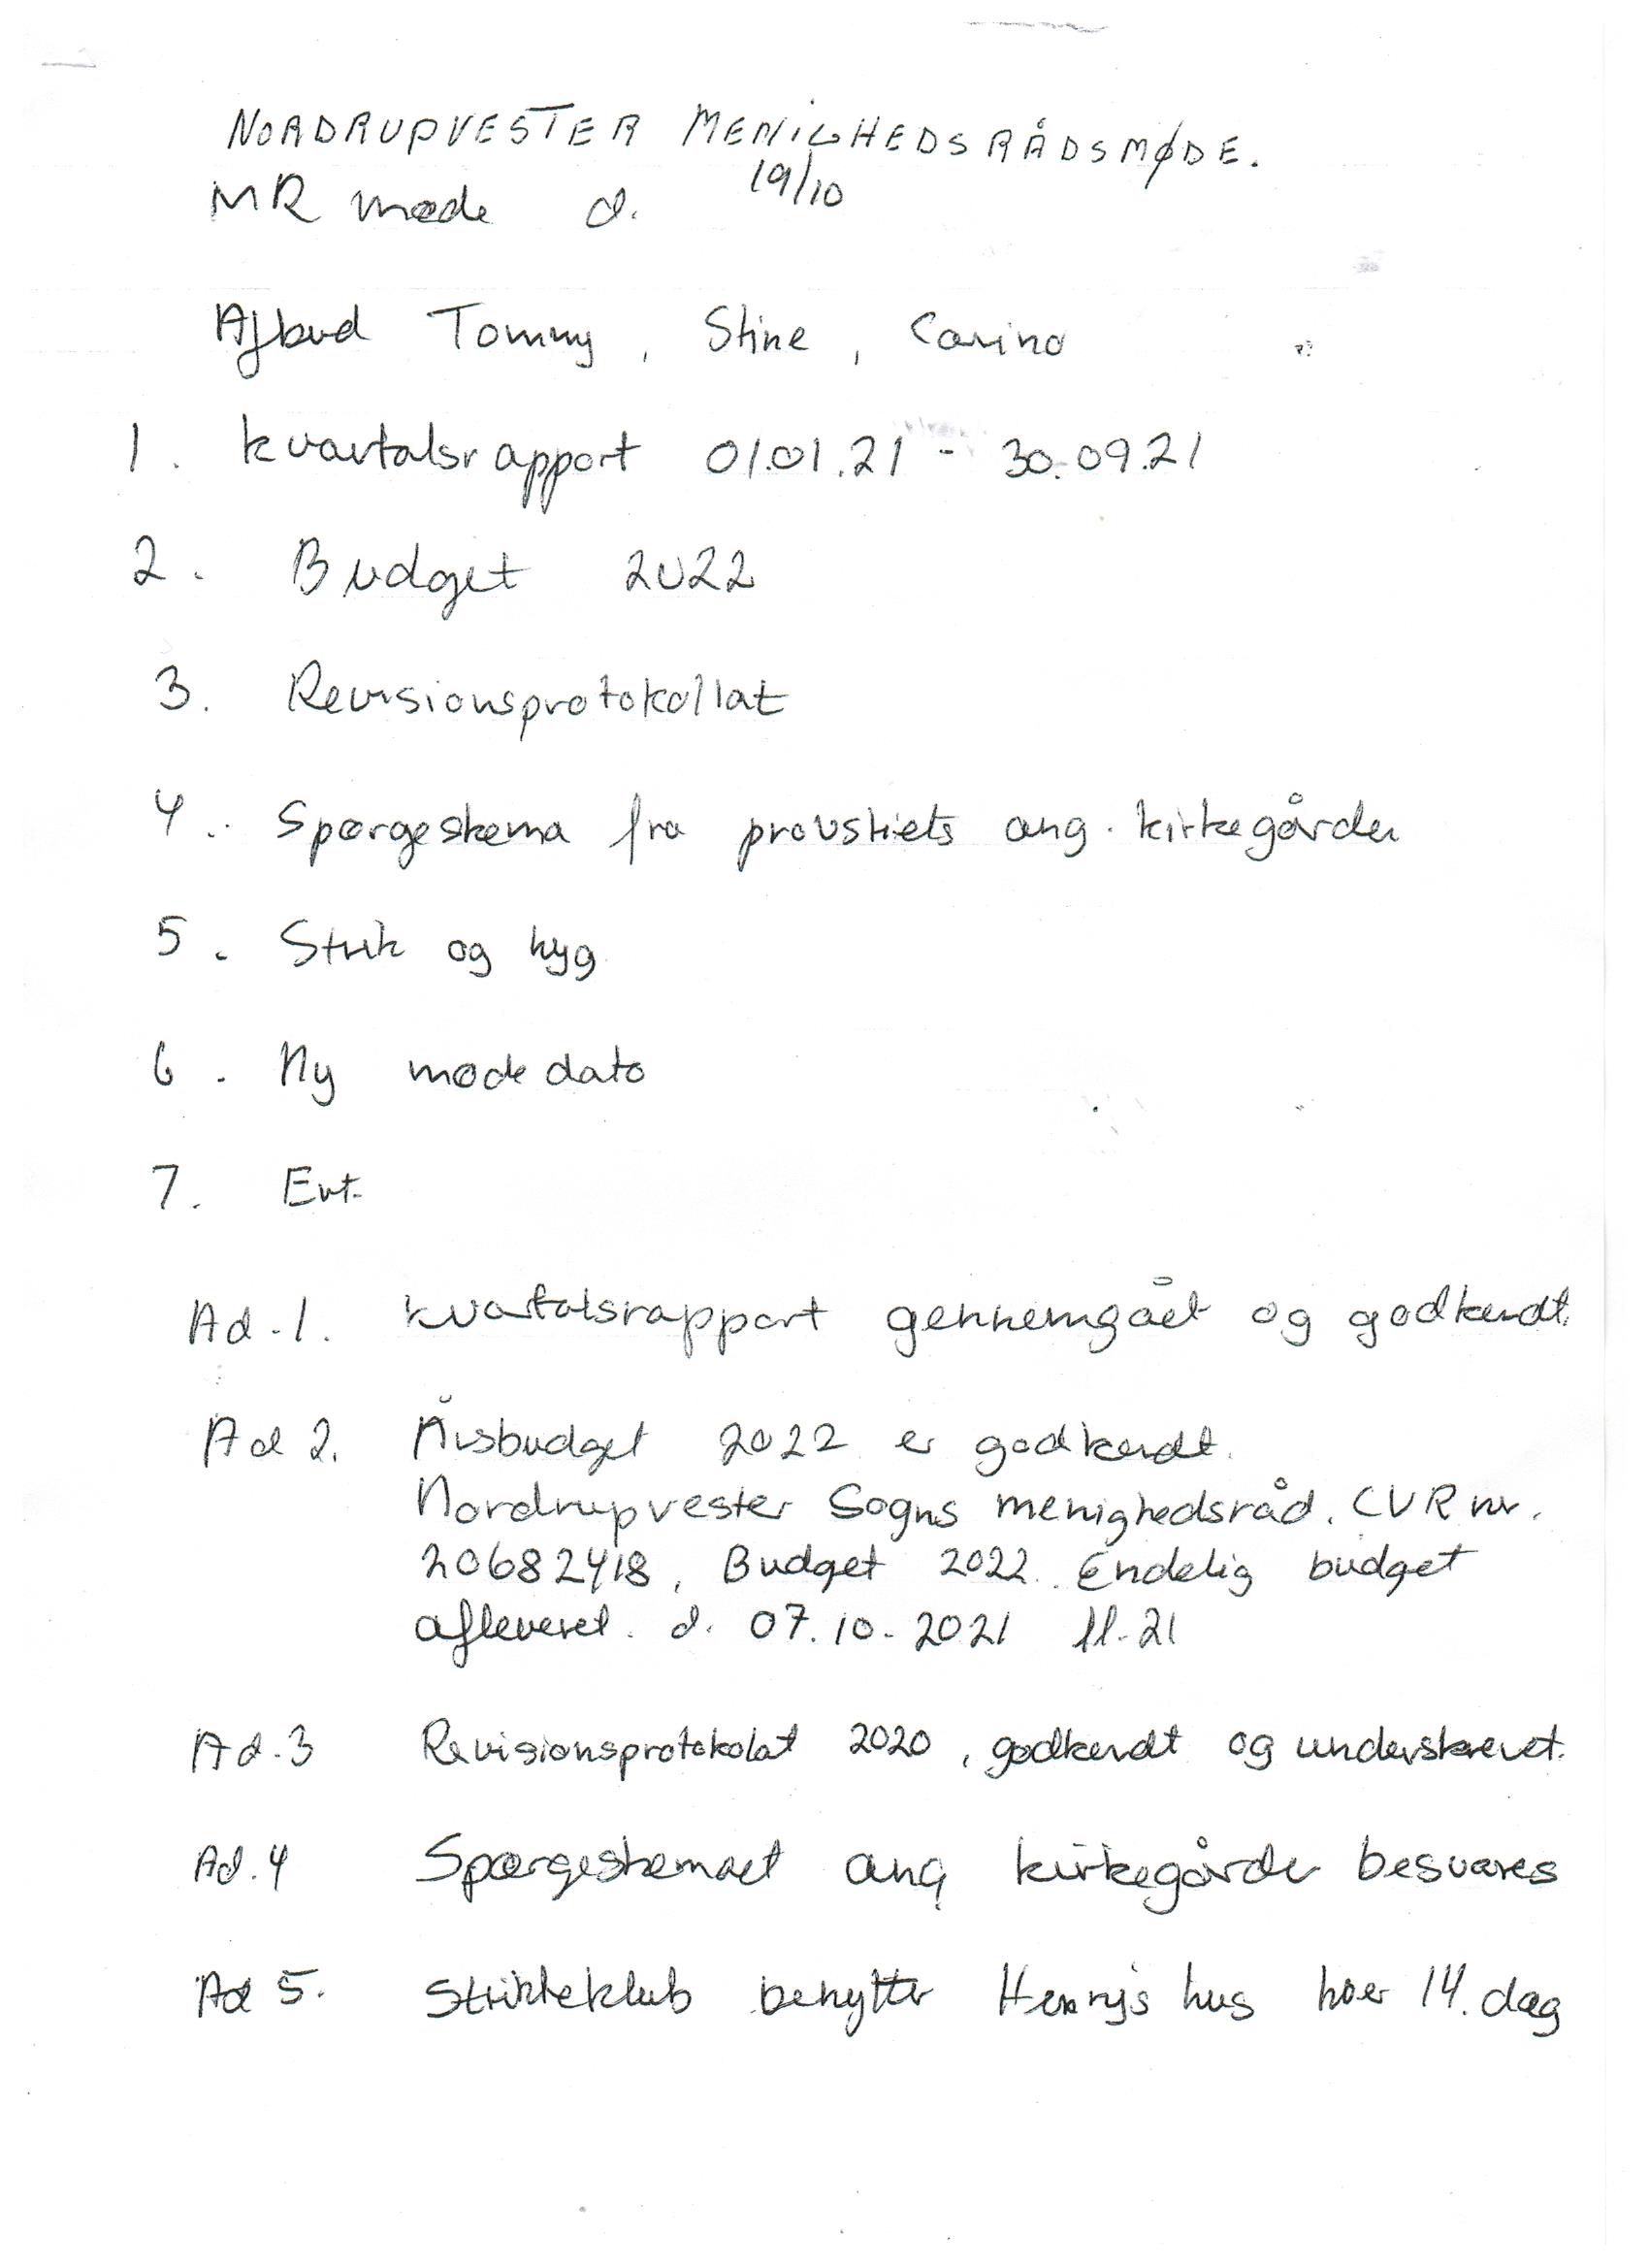 NORDRUPVESTER MENIGHEDSRÅDSMØDE.
MR møde d. 19/10
Afbud Tommy, Stine, Carina
1. kvartalsrapport 01.01.21 - 30.09.21
2. Budget 2022
3. Revisionsprotokollat
4. Spørgeskema fra provstiets ang. kirkegårde
5. Strik og hyg
6. Ny mødedato
7. Evt.
Ad.1. kvartalsrapport gennemgået og godkendt.
Ad 2. Årsbudget 2022 er godkendt.
Nordrupvester Sogns menighedsråd. CVR nr.
20682418, Budget 2022. Endelig budget
afleveret d. 07.10-2021 11.21
Ad.3 Revisionsprotokolat 2020, godkendt og underskrevet.
Ad.4 Spørgeskemaet ang kirkegårde besvares
Ad 5. Strikkeklub benytter Henrys hus hver 14. dag